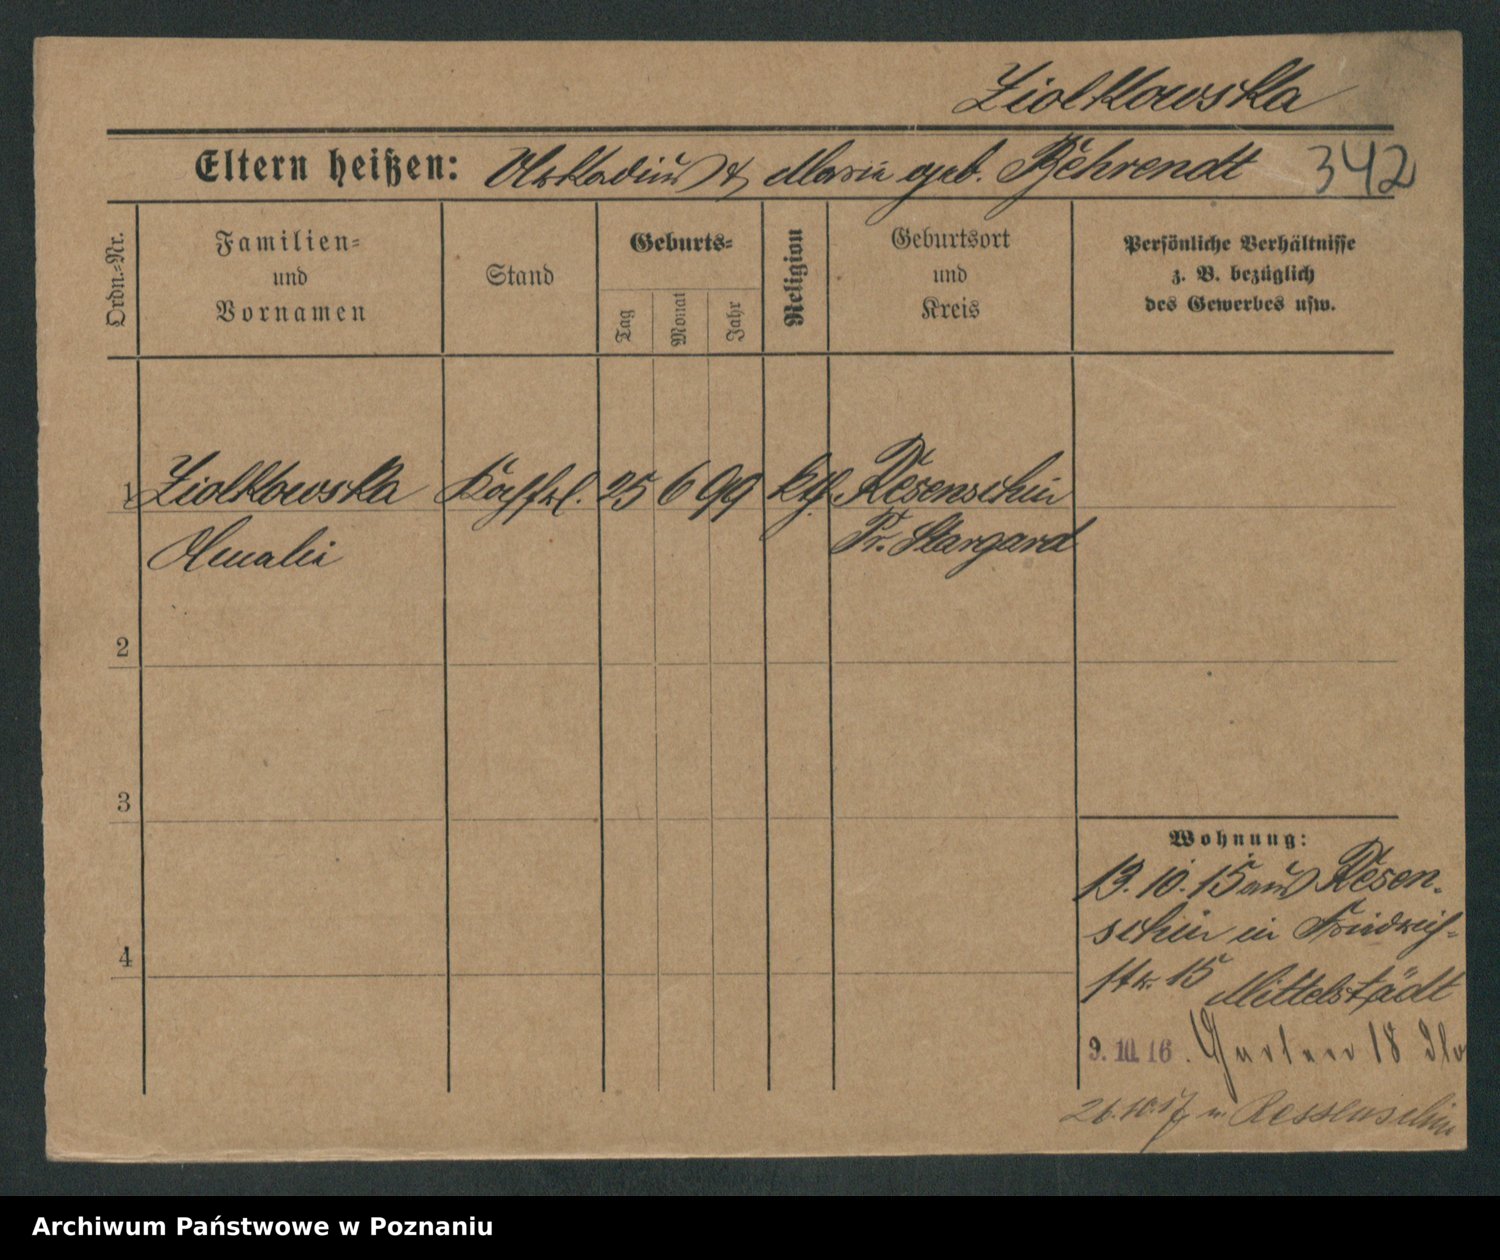 Ziolkowska
Eltern heißen: Arkadius & Marie geb. Behrendt 342
Ordn.-Nr.
Familien-
und
Vornamen
Stand
Geburts-
Tag
Monat
Jahr
Religion
Geburtsort
und
Kreis
Persönliche Verhältnisse
z. B. bezüglich
des Gewerbes usw.
1 Ziolkowska 25 6 99 kth. Resenschin
Amalie Pr. Stargard
2
3
4
Wohnung:
13. 10. 15 aus Resen-
schin in Friedrich-
str. 15 Mittelstädt
9. 10. 16. 18
26.10.17 n. Ressenschin
Archiwum Państwowe w Poznaniu